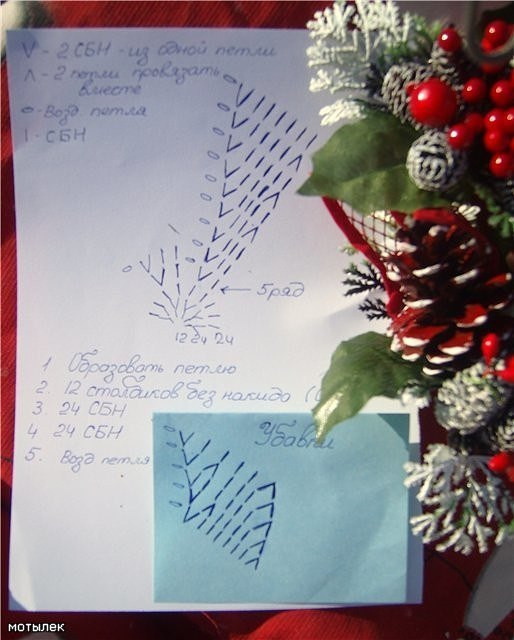 V - 2 СБН - из одной петли
Λ - 2 петли провязать
вместе
0 - Возд. петля
I - СБН
← 5 ряд
12 24 24
1 Образовать петлю
2. 12 столбиков без накида (
3. 24 СБН
4 24 СБН
5. Возд петля
Убавки
мотылек